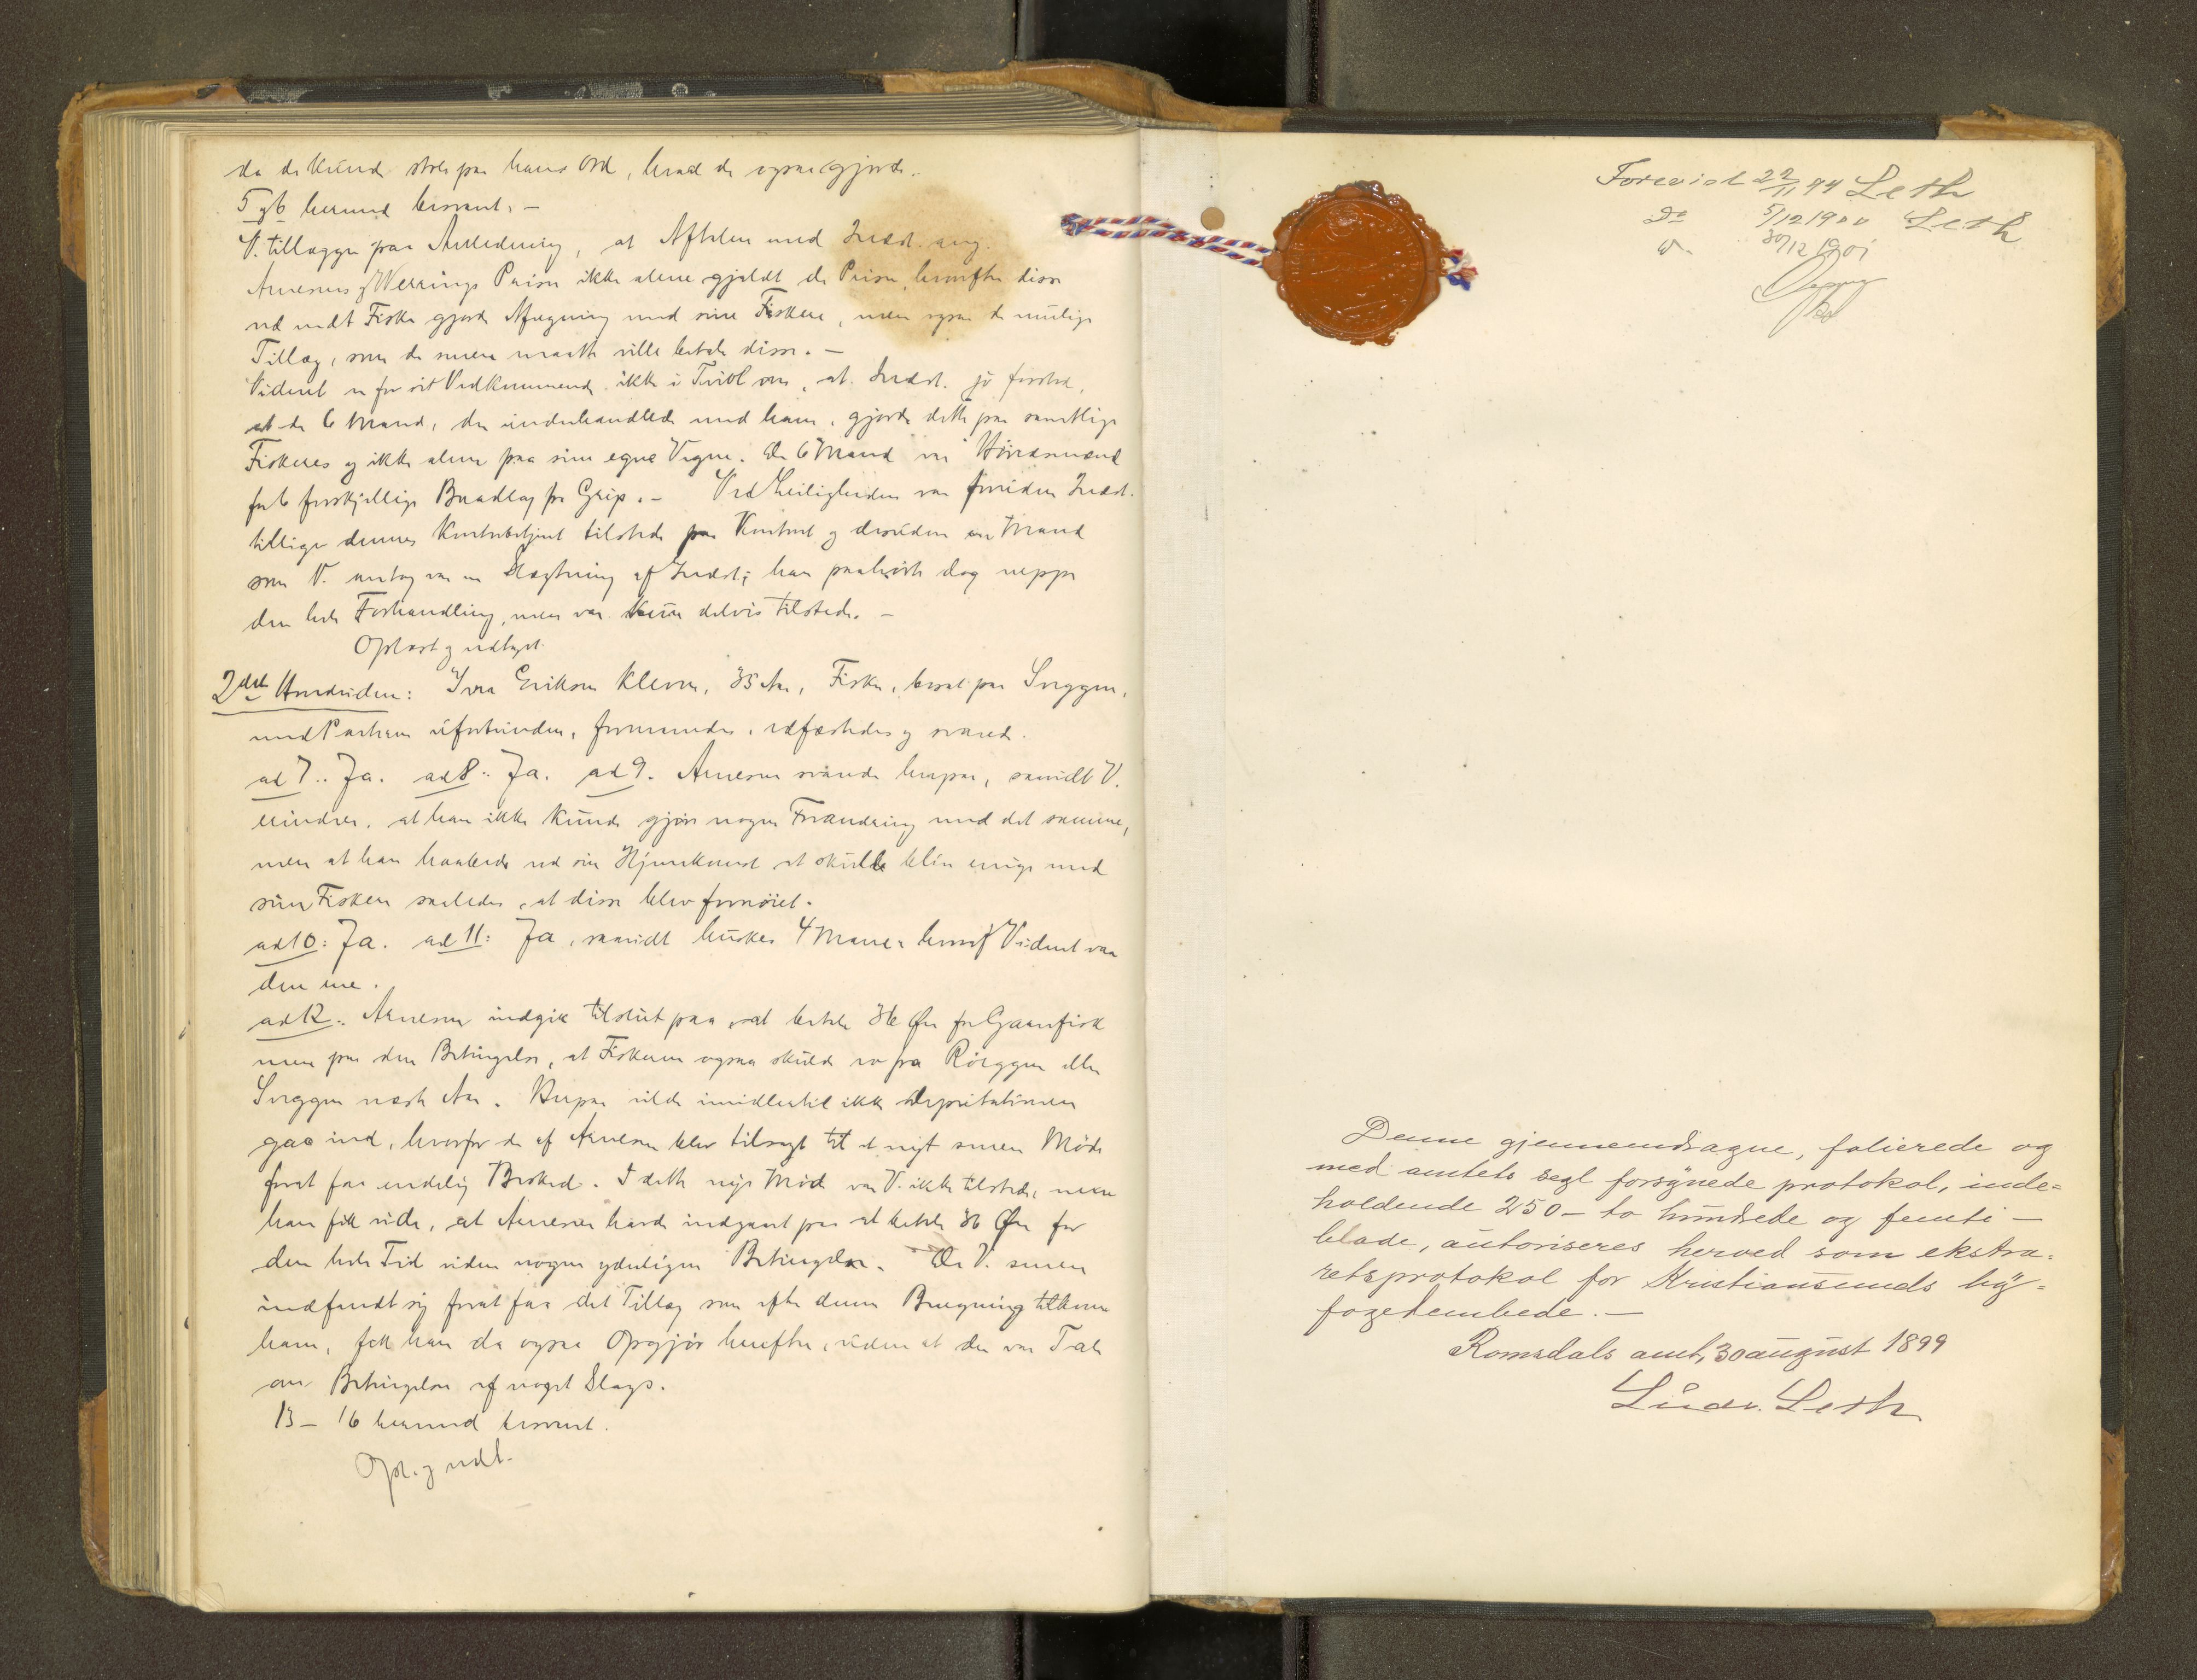 da de kunde stole paa hans Ord, hvad de ogsaa gjorde.
5 og 6 herved besvaret. -
V. tillægger paa Anledning, at Aftalen med Indst. ang.
Arnesens & Werrings Priser ikke alene gjaldt de Priser, hvorefter disse
ved endt Fiske gjorde Afregning med sine Fiskere, men ogsaa de mulige
Tillæg, som de senere maatte ville betale disse. -
Vidnet er for sit Vedkommende ikke i Tvivl om, at Indst. jo forstod,
at de 6 Mand, der underhandlede med ham, gjorde dette paa samtlige
Fiskeres og ikke alene paa sine egne Vegne. De 6 Mand var Høvedsmænd
for 6 forskjellige Baadlag fra Grip. - Ved Leiligheden var foruden Indst.
tillige dennes Kontorbetjent tilstede paa Kontoret og desuden en Mand
som V. antog var en Slægtning af Indst.; han paahørte dog neppe
den hele Forhandling, men var kun delvis tilstede. -
Oplæst og vedtaget.
2det Hovedvidne: Iver Eriksen Kleven, 35 Aar, Fisker, bosat paa Sveggen,
med Parterne uforbunden, formanedes, edfæstedes og svared.
ad 7.. Ja. ad 8.. Ja. ad 9. Arnesen svarede herpaa, saavidt V.
erindrer, at han ikke kunde gjøre nogen Forandring med det samme,
men at han haabede ved sin Hjemkomst at skulle blive enige med
sine Fiskere saaledes, at disse blev fornøiet.
ad 10: Ja. ad 11: Ja, saavidt huskes 4 Mand, hvoraf Vidnet var
den ene.
ad 12.. Arnesen indgik tilslut paa at betale 36 Øre for Garnfisk
men paa den Betingelse, at Fiskerne ogsaa skulde ro fra Røeggen eller
Sveggen næste Aar. Herpaa vilde imidlertid ikke Deputationen
gaa ind, hvorfor de af Arnesen blev tilsagt til et nyt senere Møde
forat faa endelig Besked. I dette nye Møde var V. ikke tilstede, men
han fik vide, at Arnesen havde indgaaet paa at betale 36 Øre for
den hele Tid uden nogen yderligere Betingelse. Da V. senere
indfandt sig forat faa det Tillæg som efter denne Beregning tilkom
ham, fik han da ogsaa Opgjør herefter, uden at der var Tale
om Betingelser af noget Slags.
13 - 16 herved besvaret.
Opl. og vedt.
Forevist 22/11 99 Leth
Do 5/12 1900 Leth
30/12 1901
Denne gjennemdragne, folierede og
med amtets segl forsynede protokol, inde=
holdende 250 - to hundrede og femti -
blade, autoriseres herved som ekstra=
retsprotokol for Kristiansunds by=
fogedembede. -
Romsdals amt, 30 august 1899
Ludv. Leth